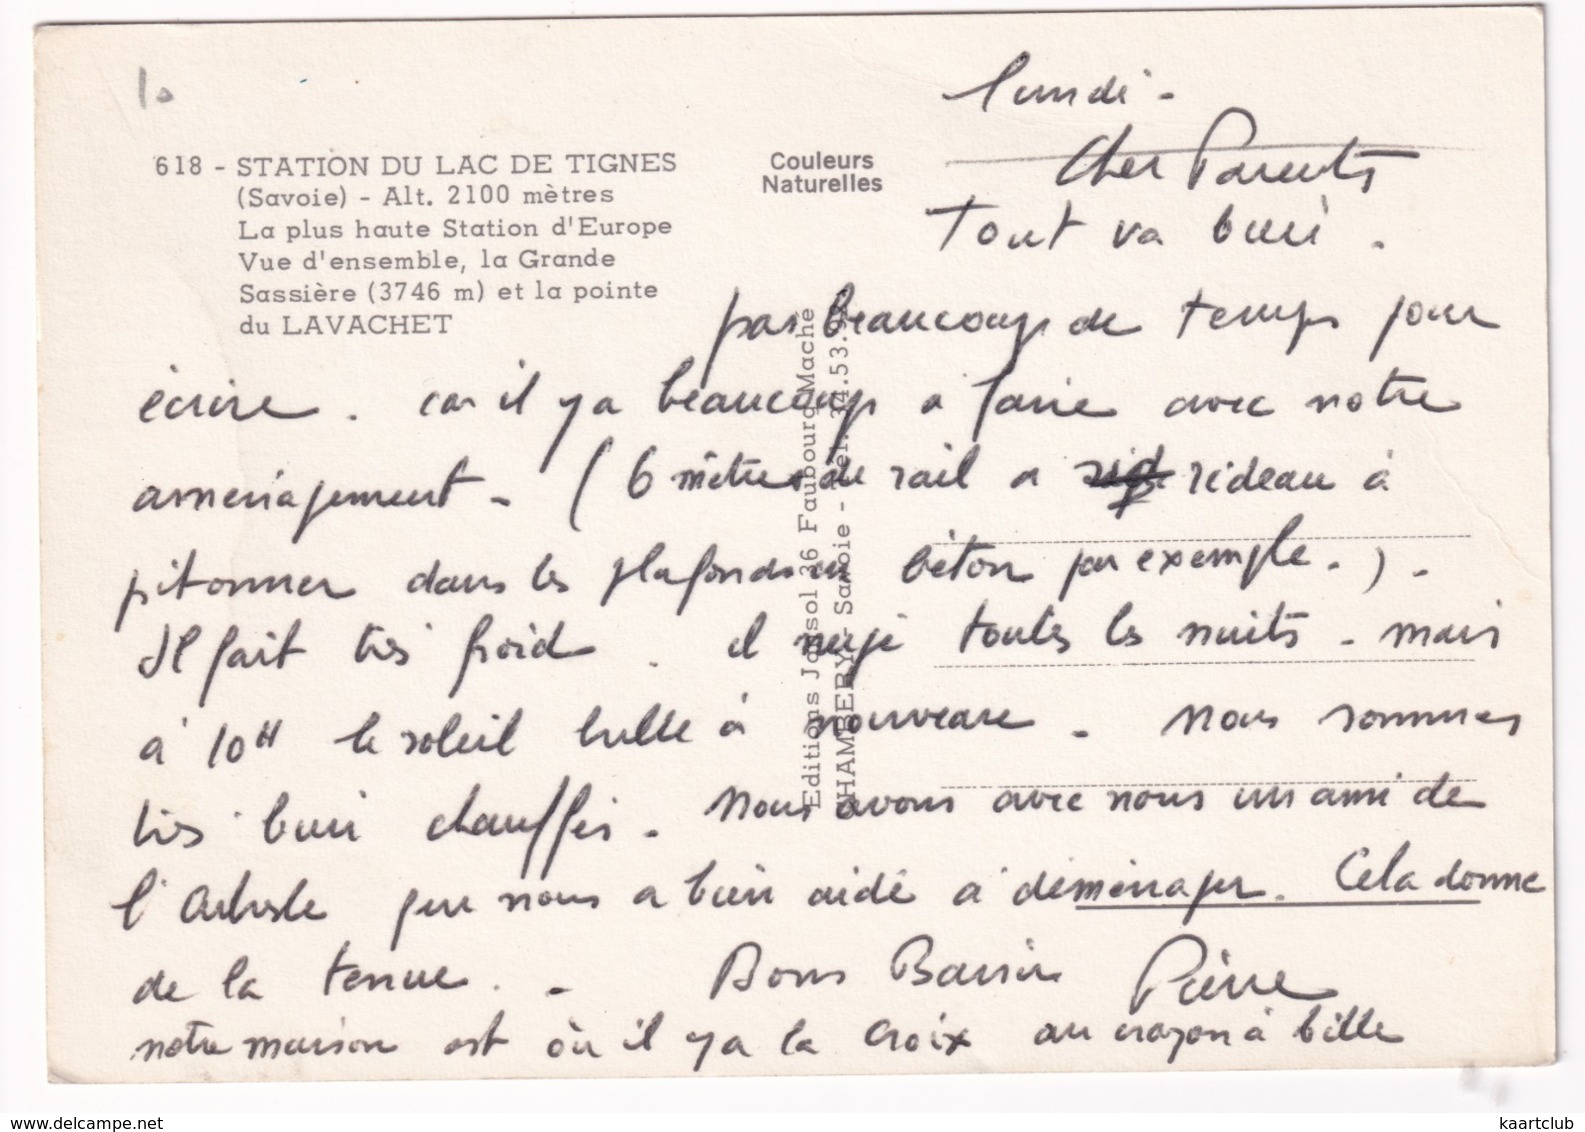 10
618 - STATION DU LAC DE TIGNES
(Savoie) - Alt. 2100 mètres
La plus haute Station d'Europe
Vue d'ensemble, la Grande
Sassière (3746 m) et la pointe
du LAVACHET
Couleurs
Naturelles
Editions Jansol 36 Faubourg Maché
CHAMBERY - Savoie - Tél. 34.53.
lundi -
Cher Parents
Tout va bien .
pas beaucoup de temps pour
écrire . car il y a beaucoup a faire avec notre
aménagement - ( 6 mètres de rail a rideau à
pitonner dans les plafonds en béton par exemple . ) .
Il fait très froid . il neige toutes les nuits - mais
à 10H le soleil brille à nouveau - Nous sommes
très bien chauffés - Nous avons avec nous un ami de
l' qui nous a bien aidé à déménager . Cela donne
de la tenue . - Bons Baisers Pierre
notre maison est où il y a la croix au crayon à bille
www.delcampe.net
kaartclub